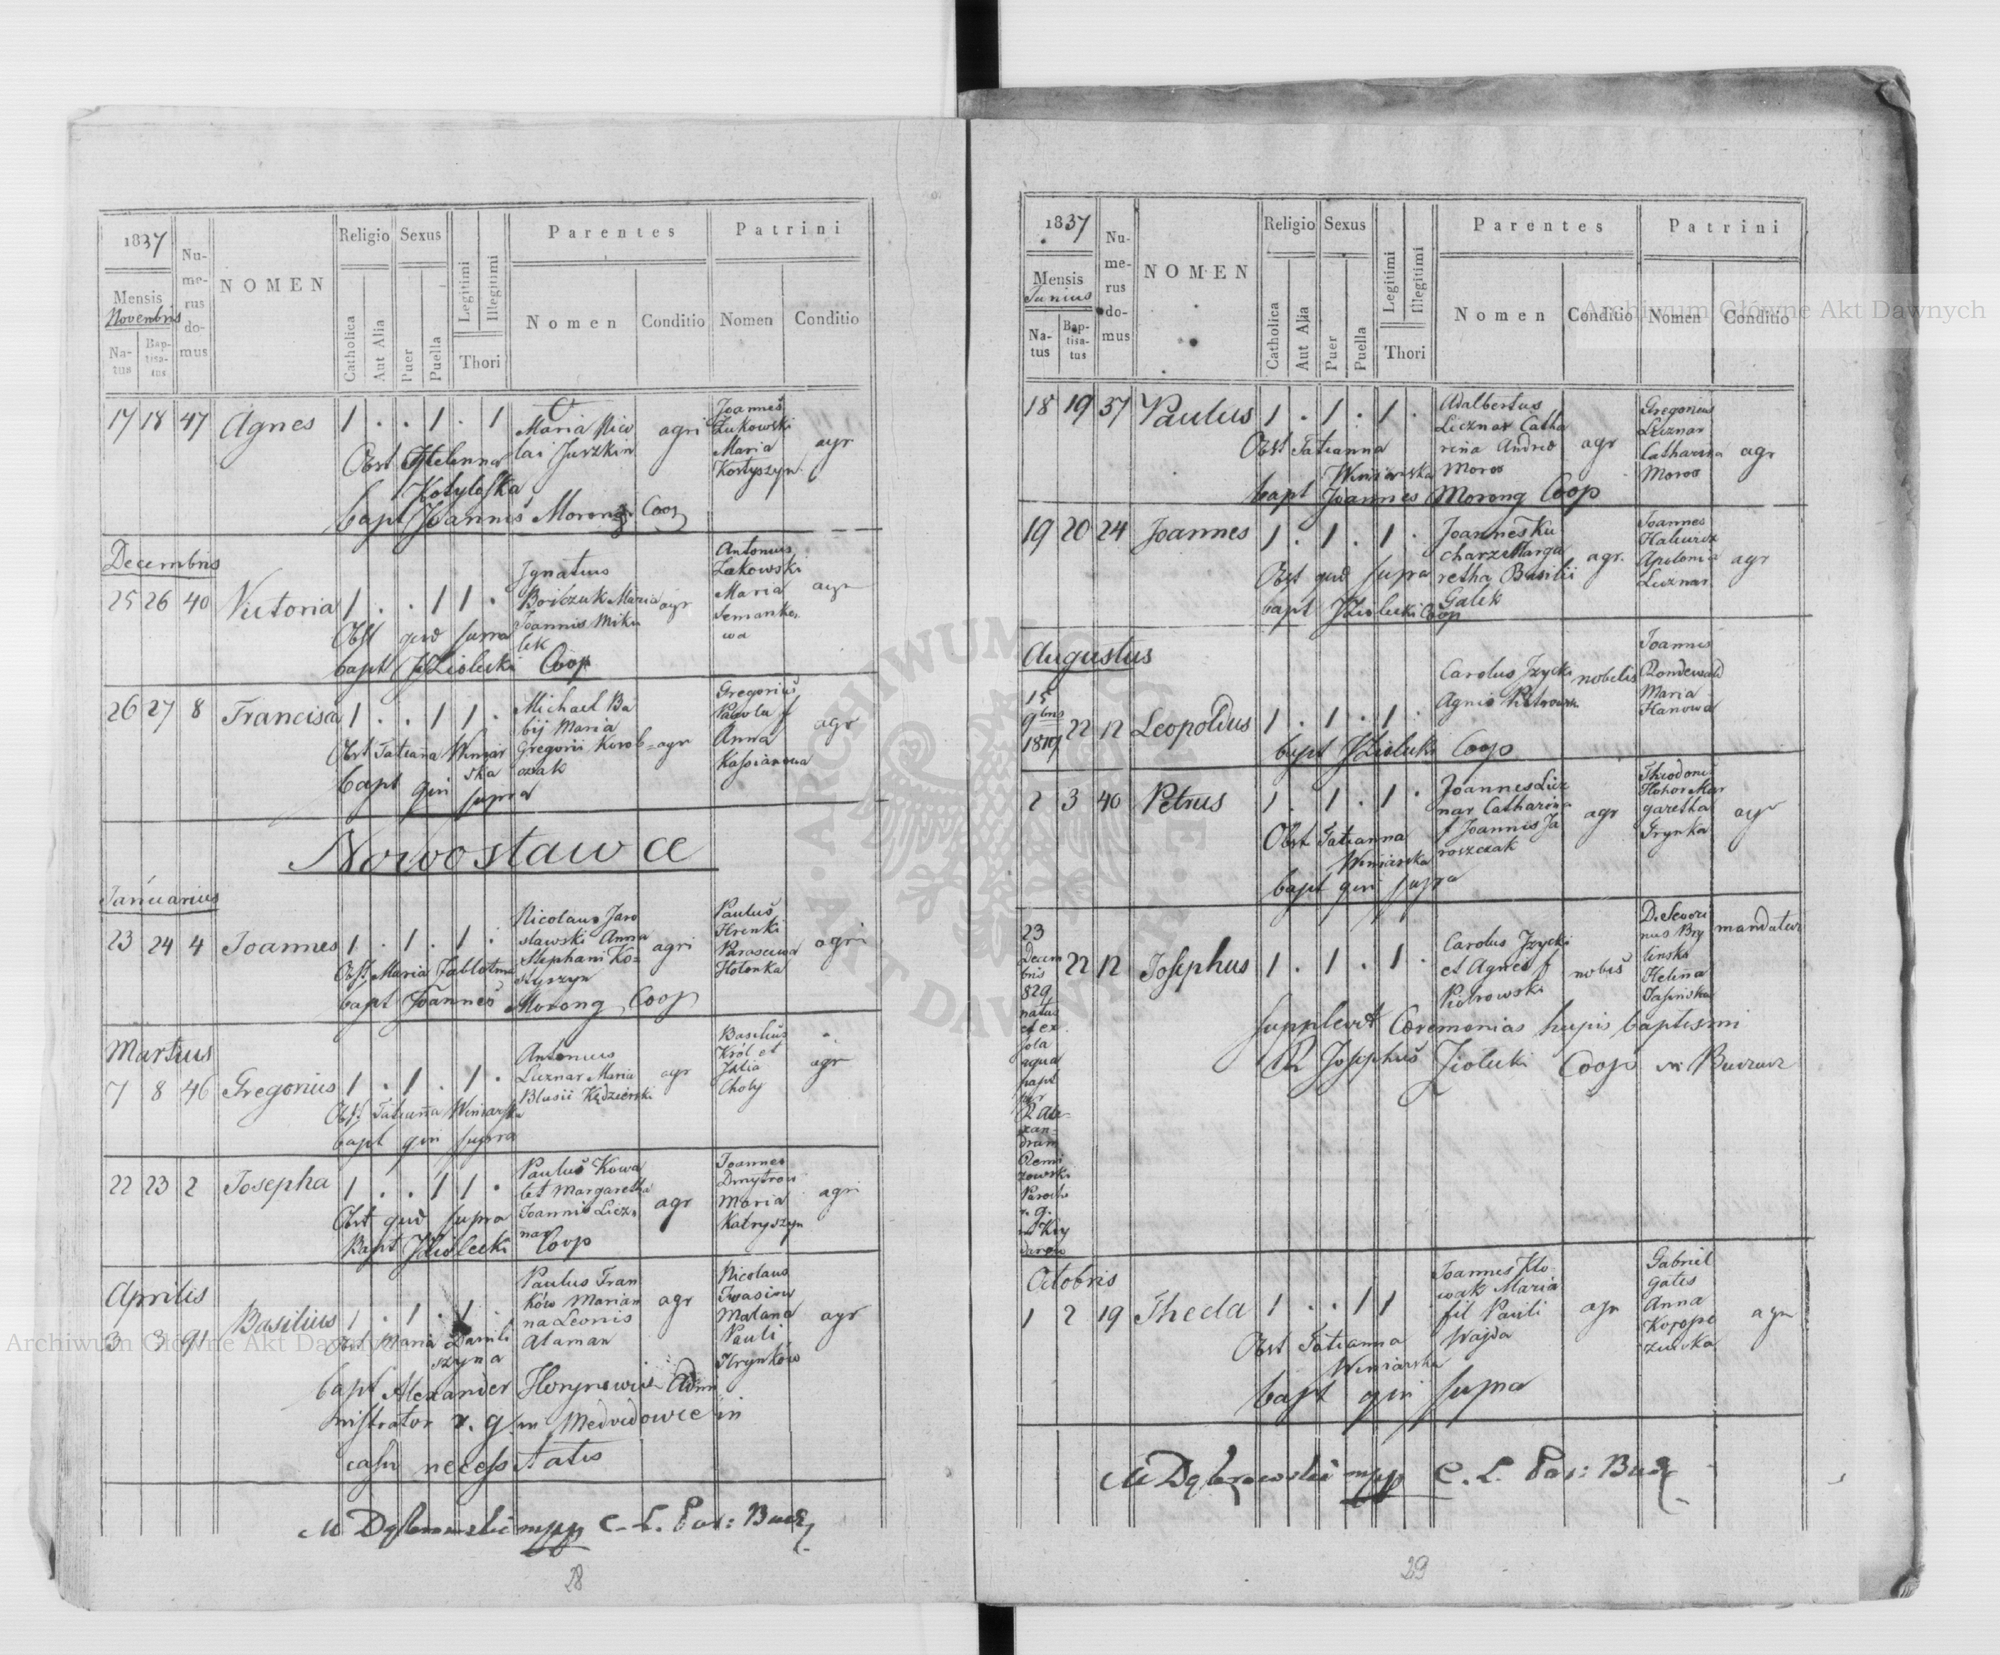 1837
Mensis
Novembris
Natus
Baptisatus
Numerus domus
NOMEN
Religio
Catholica
Aut Alia
Sexus
Puer
Puella
Legitimi
Illegitimi
Thori
Parentes
Nomen
Conditio
Patrini
Nomen
Conditio
17 18 47 Agnes 1 . . 1 . 1
Maria Nico
lai Juszkin
agri
Joannes
Żukowski
Maria
Kostyszyn
agr
Obst Helenna
Kotyloska
bapt Joannes Morong Coop
Decembris
25 26 40 Victoria 1 . . 1 1 .
Ignatius
Boiczuk Maria
Joannis Miku
lek
agr
Antonius
Zakowski
Maria
Semanko
wa
agr
Obst qud supra
bapt J Ziolecki Coop
26 27 8 Francisca 1 . . 1 1 .
Michael Ba
bij Maria
Gregorii Korob
czak
agr
Gregorius
Pawla f
Anna
Kassianowa
agr
Obst Tatianna Winiar
ska
bapt qui supra
Nowostawce
Januarius
23 24 4 Joannes 1 . 1 . 1 .
Nicolaus Jaro
slawski Anna
Stephani Ko
styszyn
agri
Paulus
Hrenki
Parascewa
Hotonka
agri
Obst Maria
bapt Joannes Morong Coop
Martius
7 8 46 Gregorius 1 . 1 . 1 .
Antonius
Luznar Maria
Blasii Kędzierski
agr
Basilius
Król et
Julia
Choby
agr
Obst Tatianna Winiarska
bapt qui supra
22 23 2 Josepha 1 . . 1 1 .
Paulus Kowa
let Margaretha
Joannis Licz
nar
agr
Joannes
Dmytrow
Maria
Katryszyn
agri
Obst qud supra
Bapt J Ziolecki Coop
Aprilis
3 3 91 Basilius 1 . 1 . 1 .
Paulus Fran
ków Marian
na Leonis
Ataman
agr
Nicolaus
Iwasiow
Malana
Pauli
Hrynków
agr
Obst Maria Danili
szyna
bapt Alexander Horynowicz Admi
nistrator r. g. in Medvidowce in
casu necessitatis
M Dąbrowski mpp C. L. Par: Bucz
28
1837
Mensis
Junius
Natus
Baptisatus
Numerus domus
NOMEN
Religio
Catholica
Aut Alia
Sexus
Puer
Puella
Legitimi
Illegitimi
Thori
Parentes
Nomen
Conditio
Patrini
Nomen
Conditio
18 19 37 Paulus 1 . 1 . 1 .
Adalbertus
Licznar Catha
rina Andreo
Moros
agr
Gregorius
Licznar
Catharina
Moros
agr
Obst Tatianna
Winiarska
bapt Joannes Morong Coop
19 20 24 Joannes 1 . 1 . 1 .
Joannes Ku
charz Marga
retha Basilii
Galek
agr.
Joannes
Halewicz
Apolonia
Luznar
agr
Obst qud supra
bapt J Ziolecki Coop
Augustus
15
9bris
22 12 Leopoldus 1 . 1 . 1 .
Carolus Jzycki
Agnis Petrowska
nobilis
Joannes
Rondewald
Maria
Hanowa
bapt J Ziolecki Coop
2 3 40 Petrus 1 . 1 . 1 .
Joannes Licz
nar Catharina
f Joannis Ja
roszczak
agr
Theodor
Hohor Mar
garetha
Hrynka
agr
Obst Tatianna
Winiarska
bapt qui supra
23
Decem
bris
829
natus
et ex
sola
aqua
bapt
per
R Ale
xan-
drum
Remi
zowski
Paroch
r. g.
22 12 Josephus 1 . 1 . 1 .
Carolus Jzycki
et Agnes f
Piotrowski
nobis
D. Severi
nus Bry
linski
Helena
Jasinska
mandatar
Supplevit Ceremonias hujus baptismi
R Josephus Ziolecki Coop
Octobris
1 2 19 Theda 1 . . 1 1
Joannes Klo
wak Maria
fil Pauli
Wajda
agr
Gabriel
Gates
Anna
Korope
zuwka
agr
Obst Tatianna
Winiarska
bapt qui supra
M Dąbrowski mpp C. L. Par: Bucz
29
Archiwum Główne Akt Dawnych
Archiwum Główne Akt Dawnych
ARCHIWUM GŁÓWNE AKT DAWNYCH